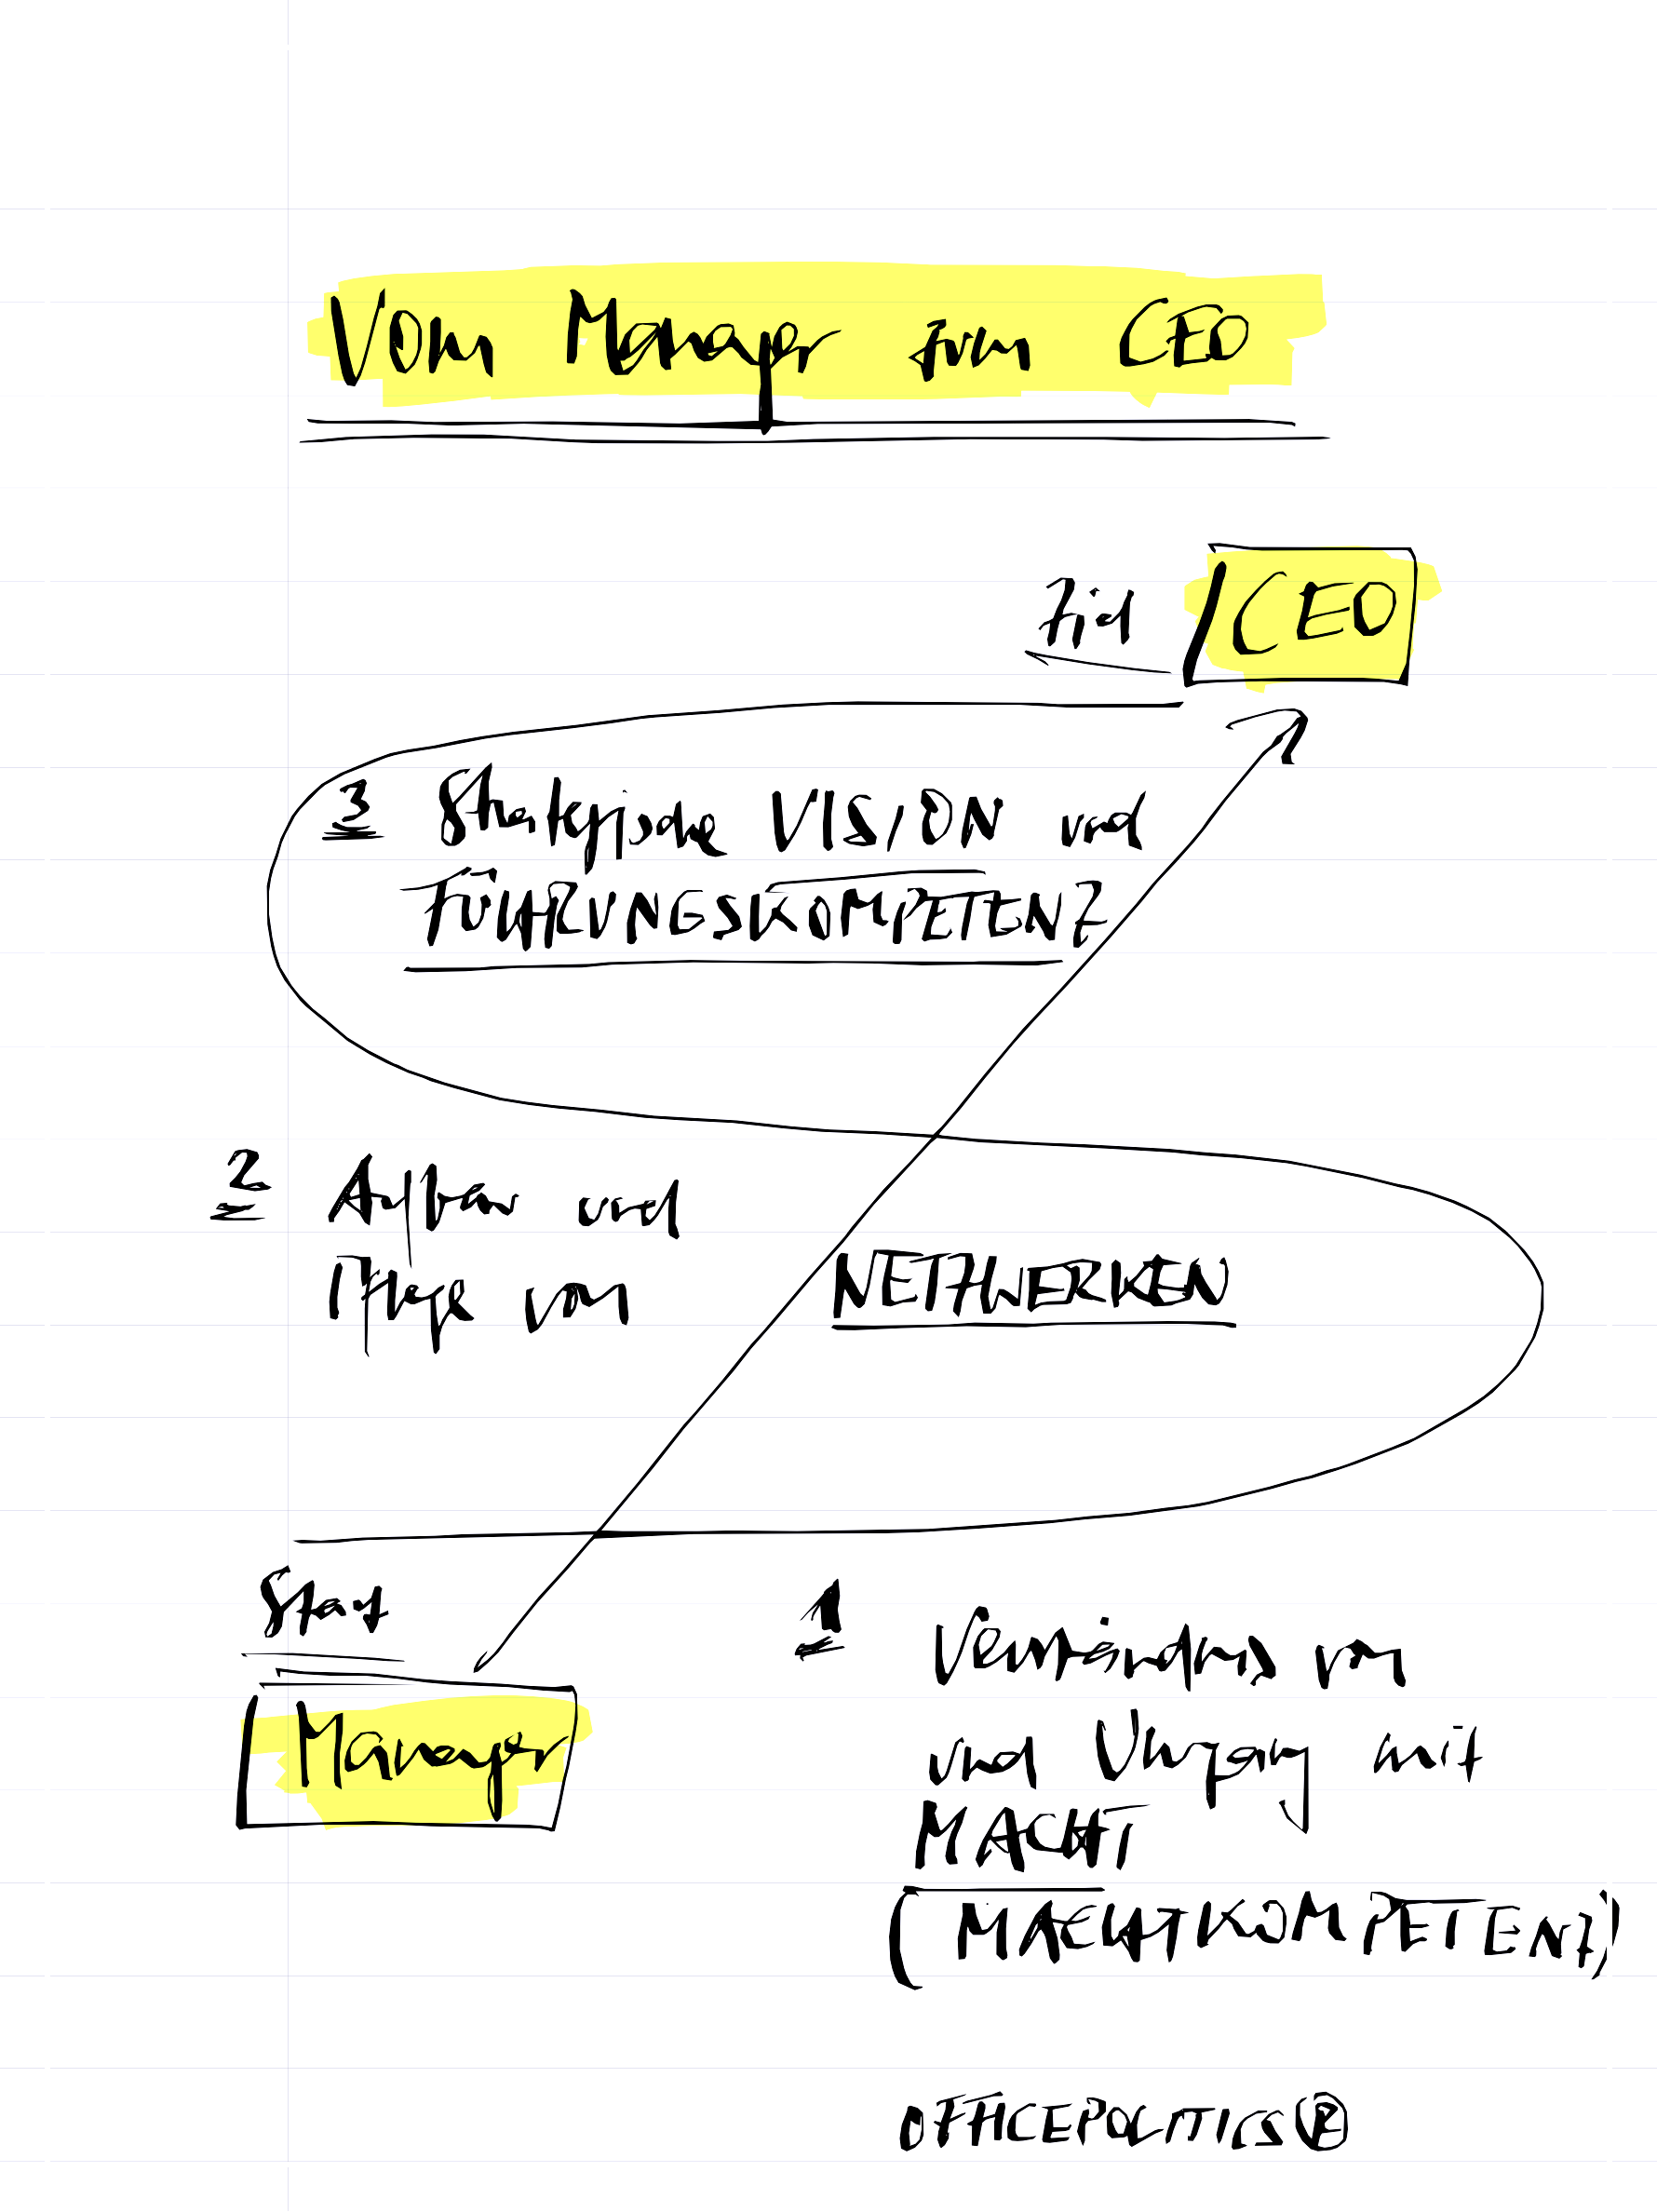 Vom Manager zum CEO
CEO
Ziel
3 Strategische VISION und
FÜHRUNGSKOMPETENZ
2 Aufbau und
Pflege von NETZWERKEN
Start
Manager
1 Verständnis von
und Umgang mit
MACHT
(MACHTKOMPETENZ)
OFFICEPOLITICS®